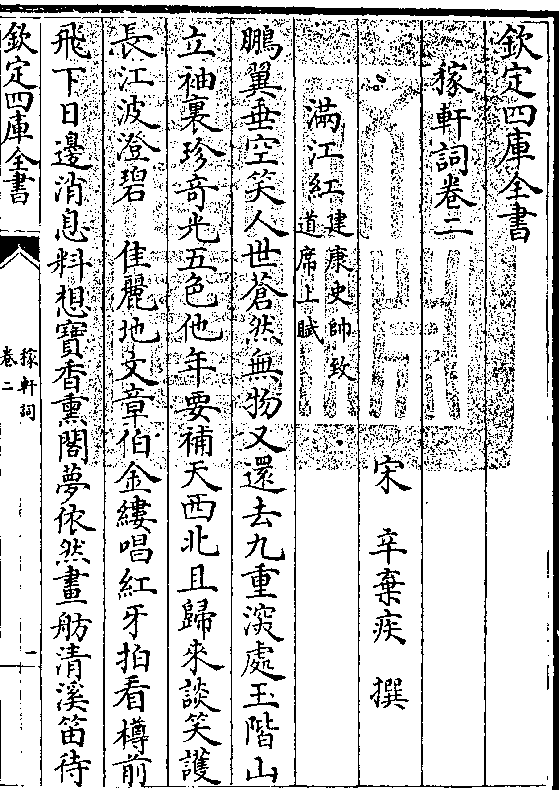 欽定四庫全書
稼軒詞卷二
宋 辛棄疾 撰
滿江紅 建康史帥致道席上賦
鵬翼垂空笑人世蒼然無物又還去九重深處玉階山
立袖裏珍奇光五色他年要補天西北且歸來談笑護
長江波澄碧 佳麗地文章伯金縷唱紅牙拍看樽前
飛下日邊消息料想寶香熏閣夢依然畫舫清溪笛待
欽定四庫全書
稼軒詞
卷二
一